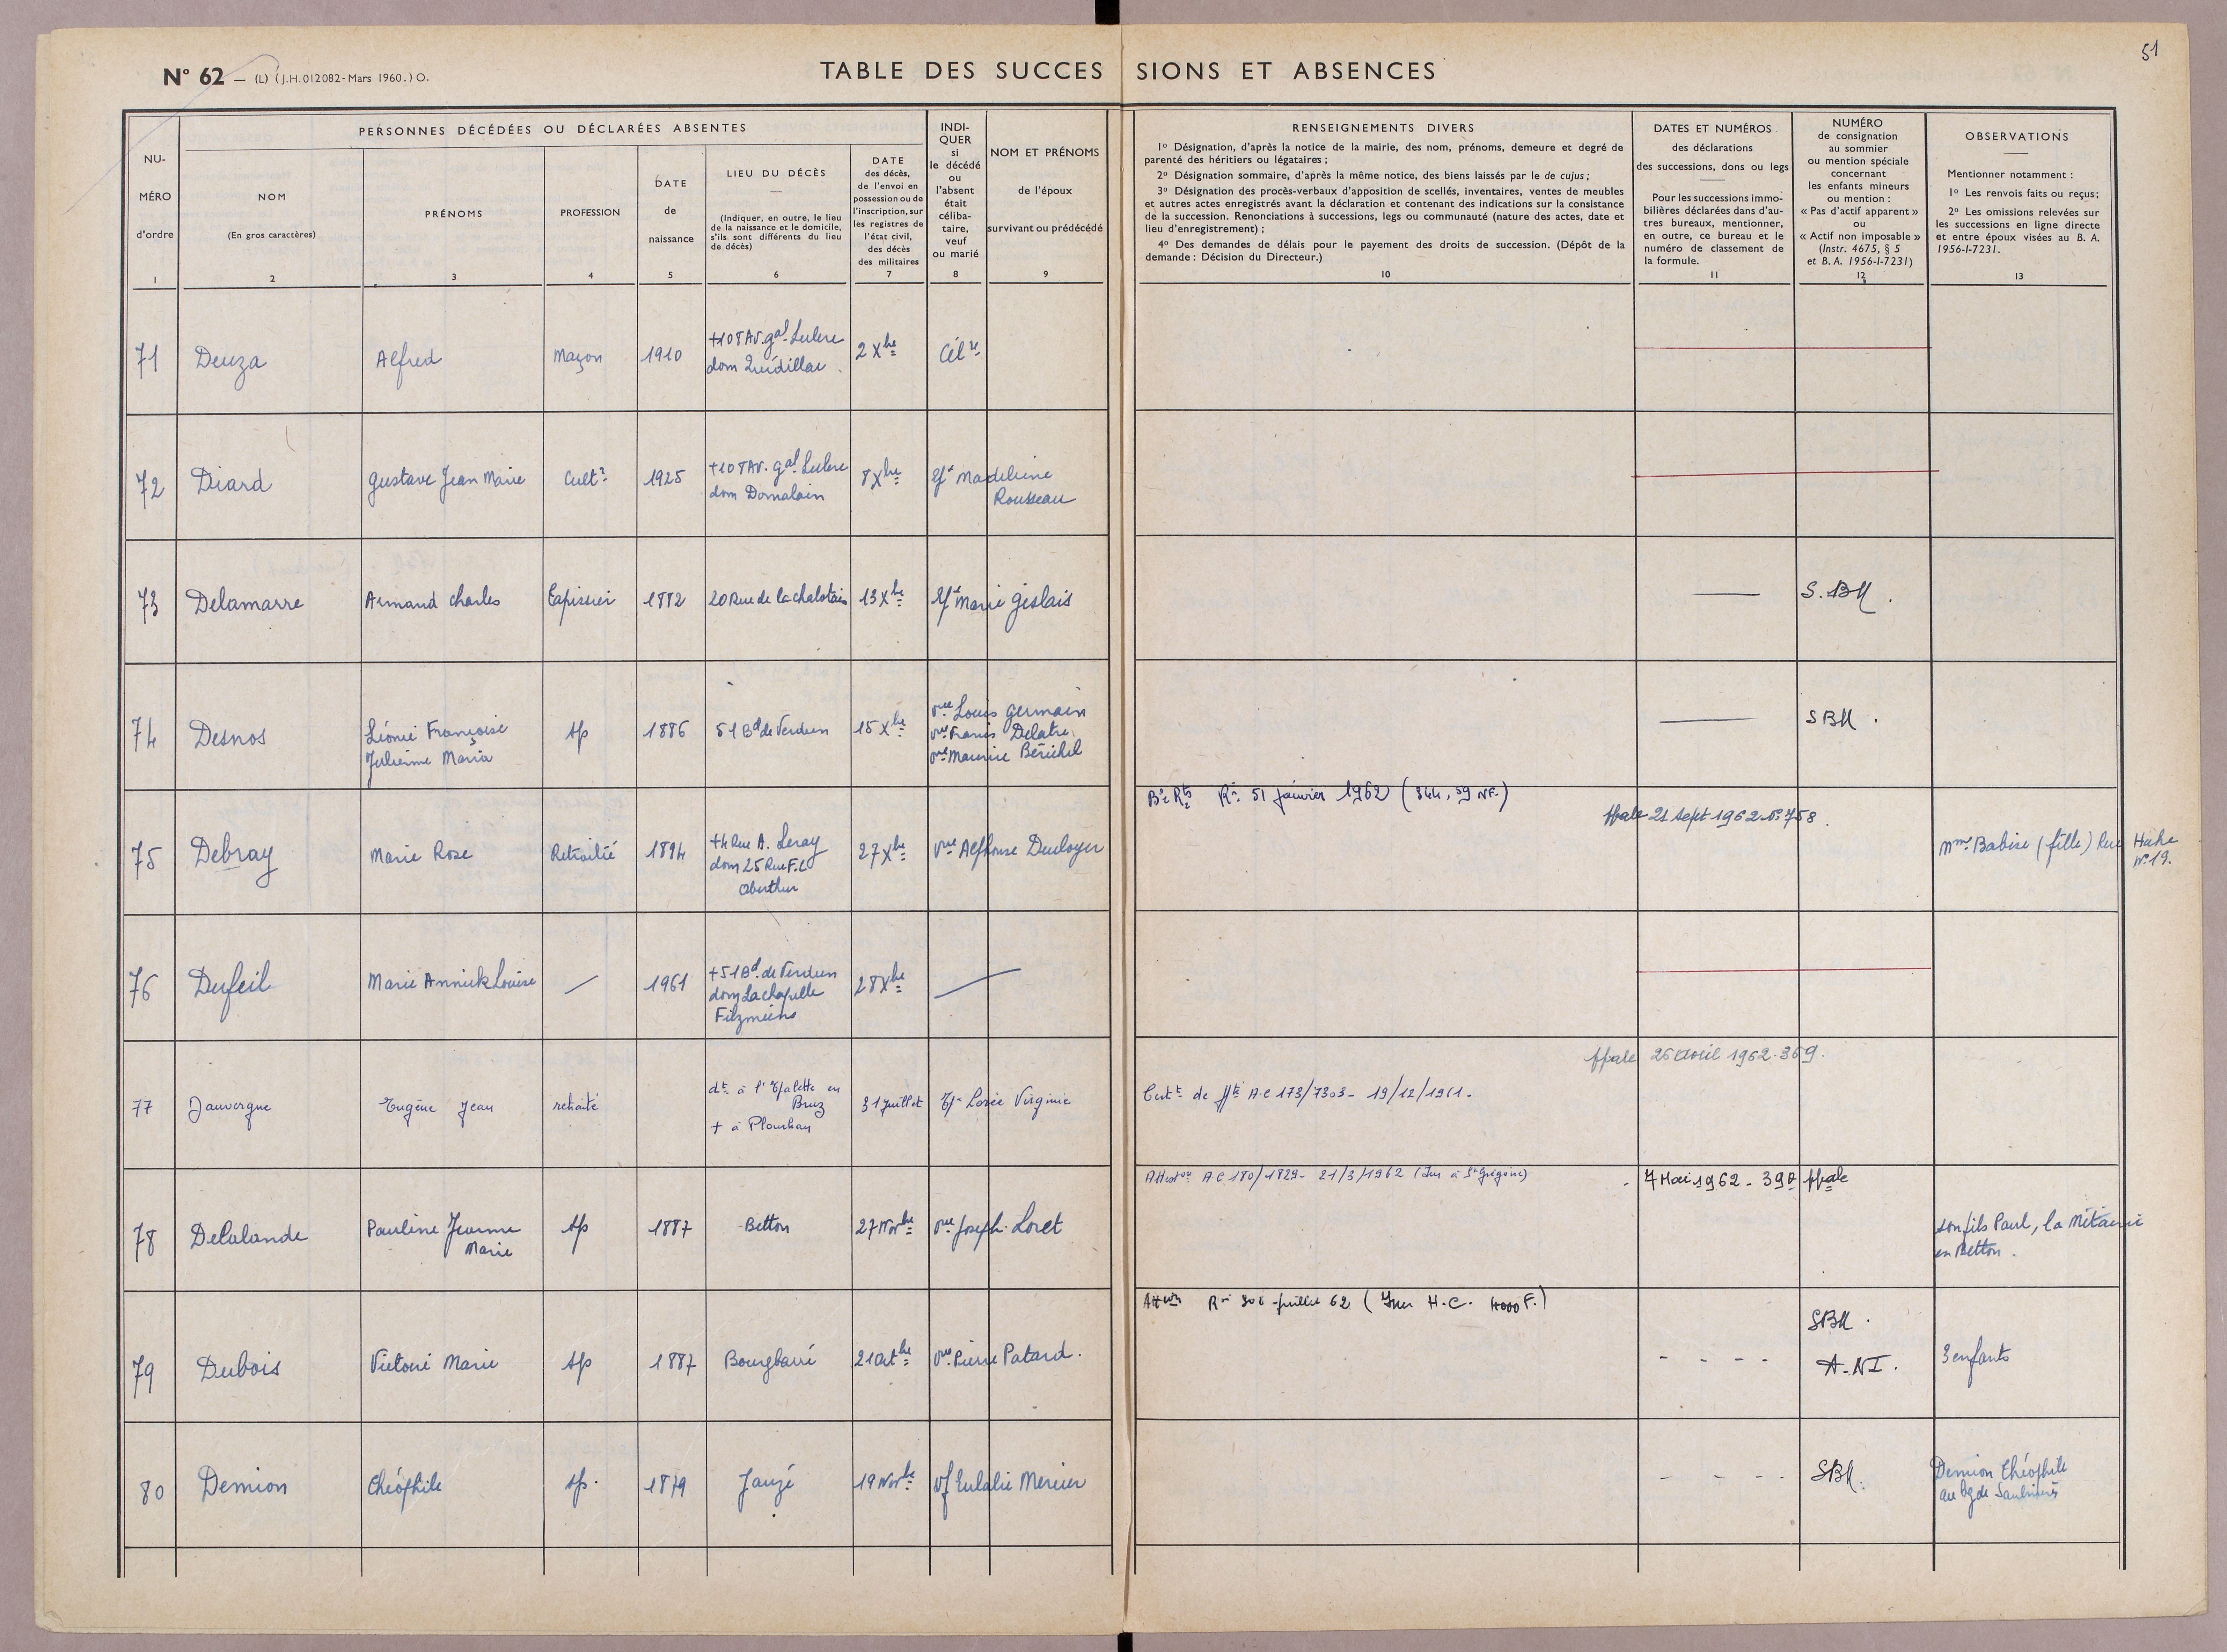 51
N° 62 — (L) (J.H.012082-Mars 1960.) O.
TABLE DES SUCCESSIONS ET ABSENCES
NU-
MÉRO
d'ordre
1
PERSONNES DÉCÉDÉES OU DÉCLARÉES ABSENTES
NOM
(En gros caractères)
2
PRÉNOMS
3
PROFESSION
4
DATE
de
naissance
5
LIEU DU DÉCÈS
(Indiquer, en outre, le lieu
de la naissance et le domicile,
s'ils sont différents du lieu
de décès)
6
DATE
des décès,
de l'envoi en
possession ou de
l'inscription, sur
les registres de
l'état civil,
des décès
des militaires
7
INDI-
QUER
si
le décédé
ou
l'absent
était
céliba-
taire,
veuf
ou marié
8
NOM ET PRÉNOMS
de l'époux
survivant ou prédécédé
9
RENSEIGNEMENTS DIVERS
1° Désignation, d'après la notice de la mairie, des nom, prénoms, demeure et degré de
parenté des héritiers ou légataires ;
2° Désignation sommaire, d'après la même notice, des biens laissés par le de cujus ;
3° Désignation des procès-verbaux d'apposition de scellés, inventaires, ventes de meubles
et autres actes enregistrés avant la déclaration et contenant des indications sur la consistance
de la succession. Renonciations à successions, legs ou communauté (nature des actes, date et
lieu d'enregistrement) ;
4° Des demandes de délais pour le payement des droits de succession. (Dépôt de la
demande : Décision du Directeur.)
10
DATES ET NUMÉROS
des déclarations
des successions, dons ou legs
Pour les successions immo-
bilières déclarées dans d'au-
tres bureaux, mentionner,
en outre, ce bureau et le
numéro de classement de
la formule.
11
NUMÉRO
de consignation
au sommier
ou mention spéciale
concernant
les enfants mineurs
ou mention :
« Pas d'actif apparent »
ou
« Actif non imposable »
(Instr. 4675, § 5
et B. A. 1956-I-7231)
12
OBSERVATIONS
Mentionner notamment :
1° Les renvois faits ou reçus ;
2° Les omissions relevées sur
les successions en ligne directe
et entre époux visées au B. A.
1956-I-7231.
13
71 Deuza Alfred Maçon 1910 +108 Av. gal Leclerc
dom Quédillac 2 Xbre Cél re
72 Diard Gustave Jean Marie Cultr 1925 +108 Av. gal Leclerc
dom Domalain 8 Xbre Madeleine
Rousseau
73 Delamarre Armand Charles Tapissier 1882 20 Rue de la Chalotais 13 Xbre Marie Geslais — S.BM.
74 Desnos Léonie Françoise
Julienne Maria sp 1886 51 Bd de Verdun 15 Xbre vve Louis Germain
vve Francis Delatre
vve Maurice Beruhel — SBM.
75 Debray Marie Rose Retraitée 1894 +4 Rue A. Leray
dom 25 Rue F.C
Oberthur 27 Xbre vve Alphonse
31 janvier 1962 (344,59 NF.)
ppale 21 sept 1962 n° 758.
Mme Babise (fille) Rue
N° 19.
76 Dufeil Marie Annick Louise — 1961 +51 Bd. de Verdun
dom La chapelle
Filzméens 28 Xbre —
77 Dauvergne Eugène Jean retraité
Bruz
+ à Plourhan 31 Juillet Lorée Virginie
Certt de A.C 173/7303 - 19/12/1961.
ppale 26 Avril 1962. 369.
78 Delalande Pauline Jeanne
Marie sp 1887 Betton 27 Novbre vve Joseph Loret
AC 180/1829 - 21/3/1962 (Im à St Grégoire)
7 Mai 1962 - 398 ppale
son fils Paul, la Métairie
en Betton.
79 Dubois Victoire Marie sp 1887 Bourgbarré 21 Octbre vve Pierre Patard.
juillet 62 (Imm H.C. 4000 F.)
- - - - SBM.
A-NI. 3 enfants
80 Demion Théophile sp. 1879 Janzé 19 Novbre vf Eulalie Mercier
- - - - SBM. Demion Théophile
au bg de Saulnières